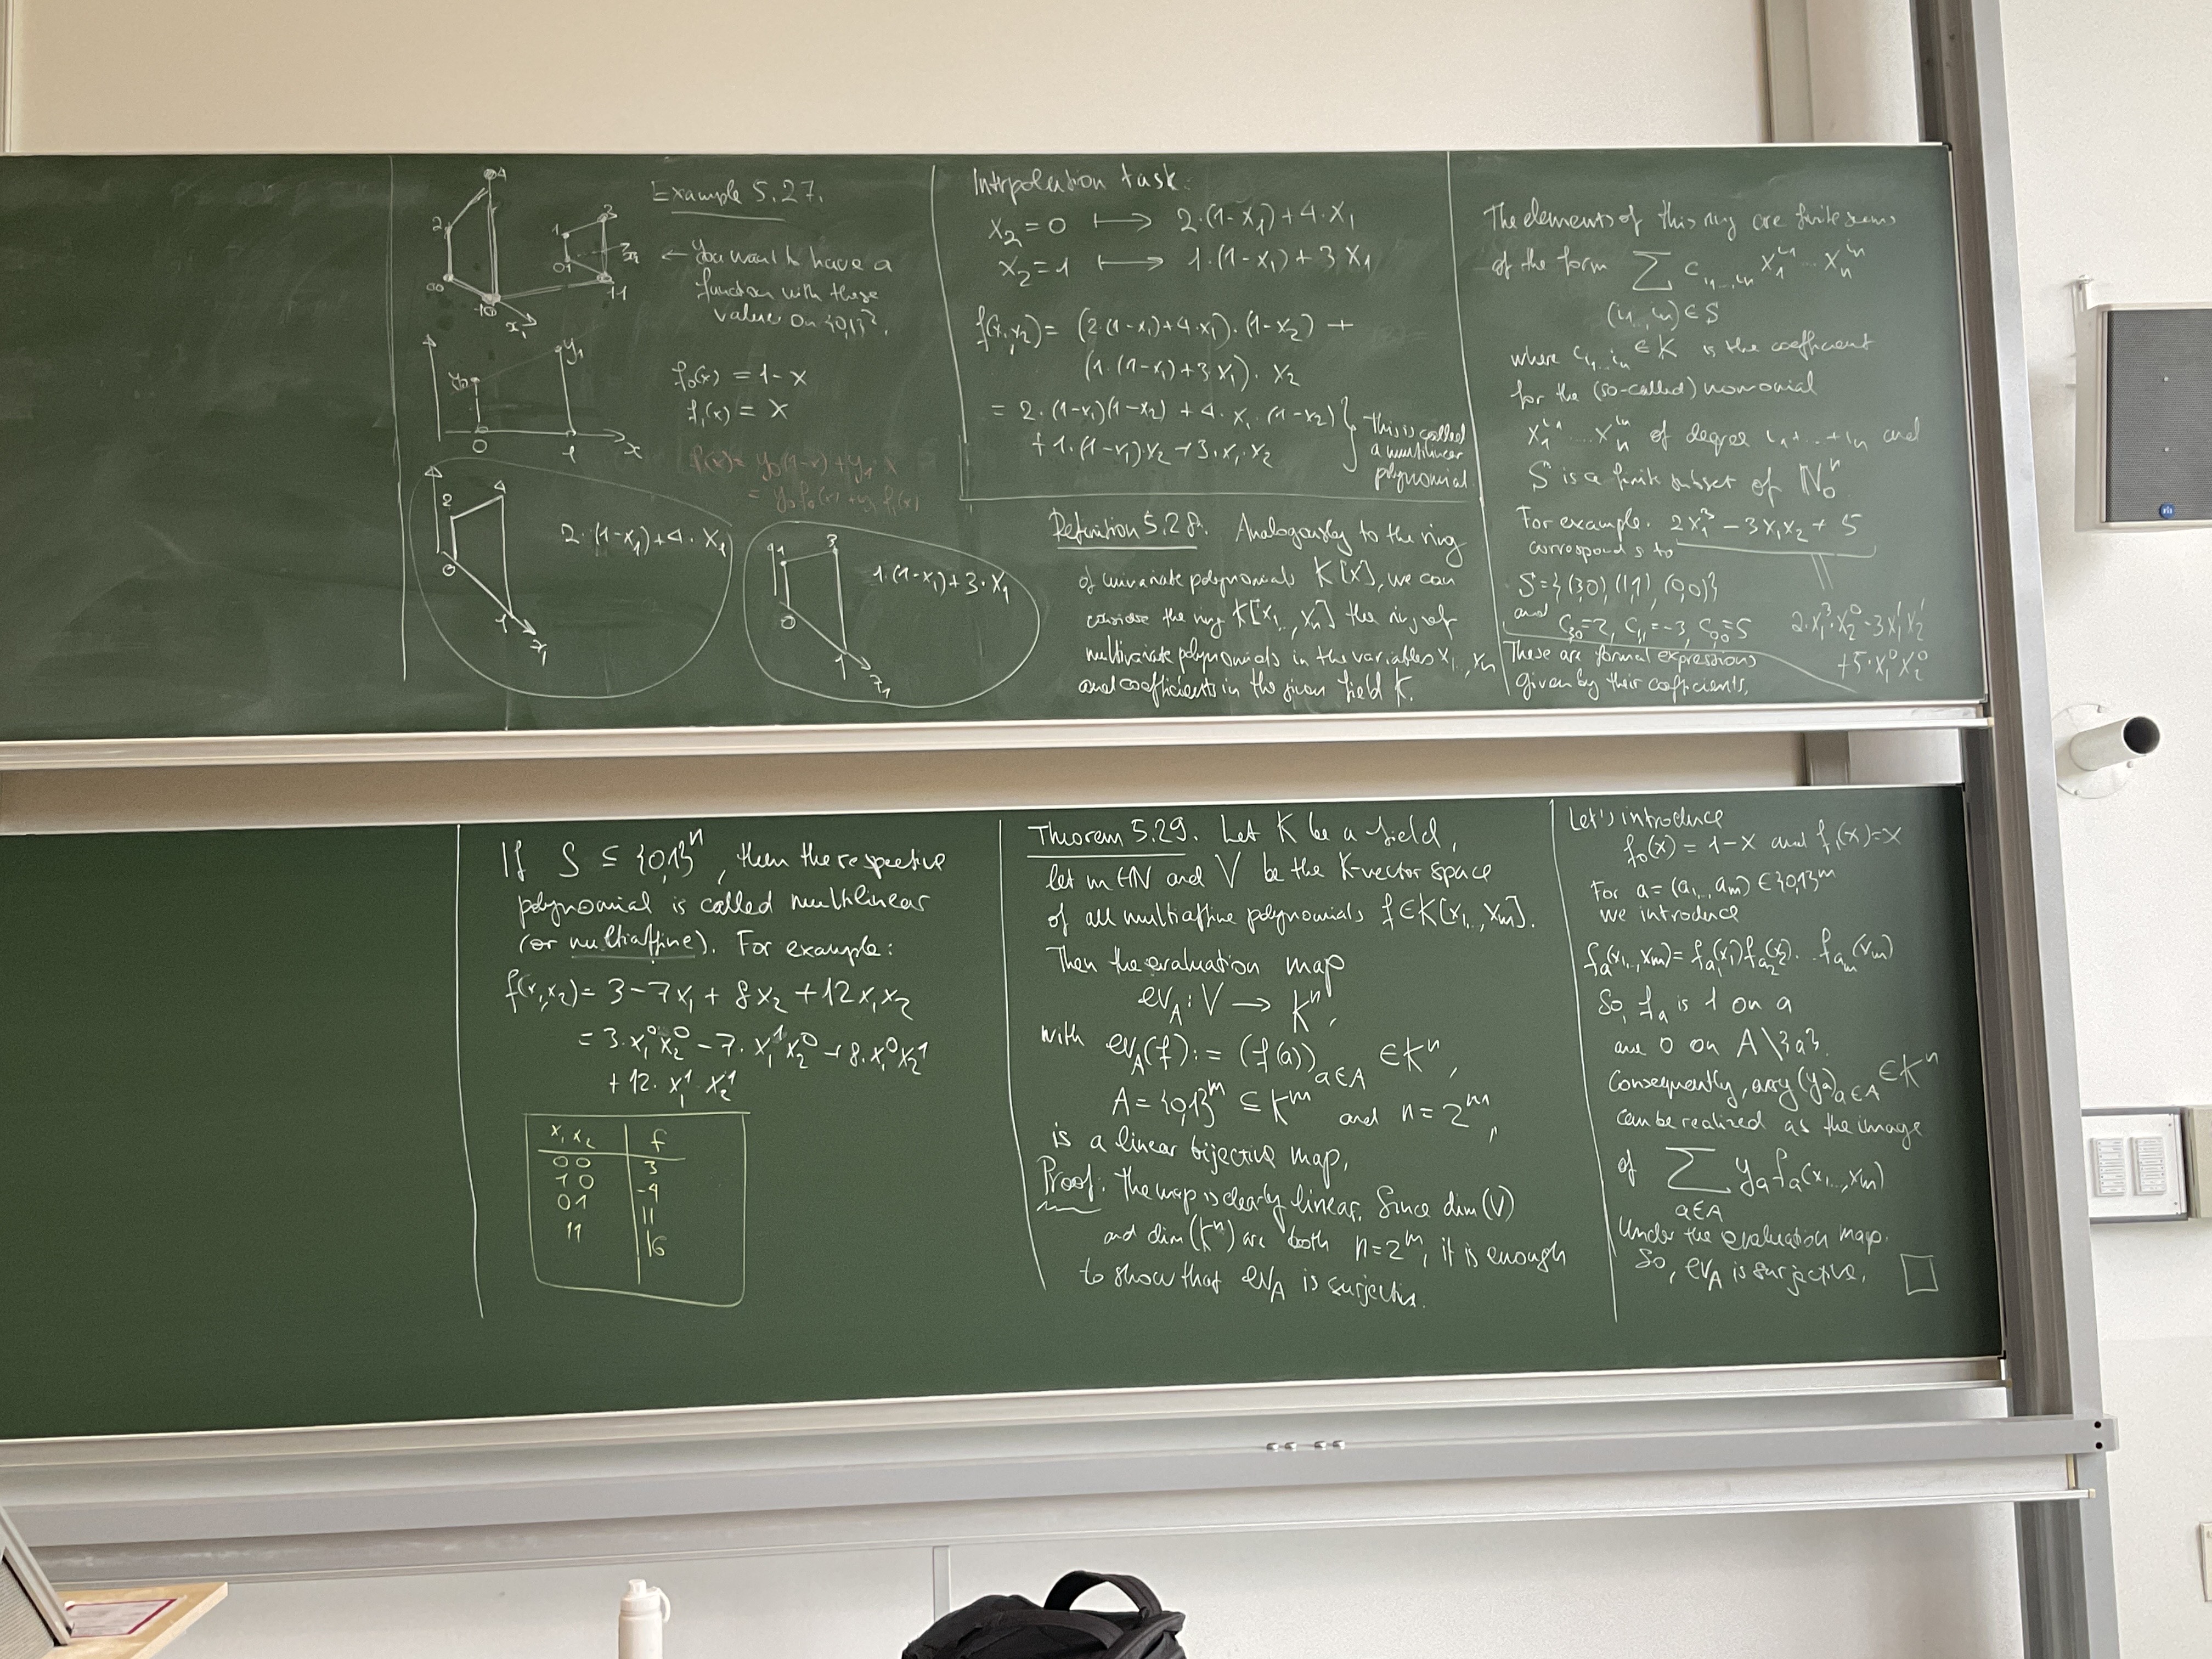 Example 5.27.
← You want to have a
function with these
values on {0,1}².
4
2
00
10
x₁
1
3
01
11
y₀
y₁
0
1
x
f₀(x) = 1-x
f₁(x) = x
f(x) = y₀(1-x) + y₁·x
= y₀f₀(x) + y₁f₁(x)
2
4
0
1
x₁
2·(1-x₁)+4·x₁
1
3
0
1
x₁
1·(1-x₁)+3·x₁
Intrpolation task:
x₂=0 ⟼ 2·(1-x₁)+4·x₁
x₂=1 ⟼ 1·(1-x₁)+3x₁
f(x₁,x₂)= (2·(1-x₁)+4·x₁)·(1-x₂) +
(1·(1-x₁)+3·x₁)·x₂
= 2·(1-x₁)(1-x₂) + 4·x₁·(1-x₂)
+1·(1-x₁)·x₂+3·x₁·x₂
} this is called
a multilinear
polynomial
Definition 5.28. Analogously to the ring
of univariate polynomials K[x], we can
consider the ring K[x₁,..,xₙ] the ring of
multivariate polynomials in the variables x₁,..,xₙ
and coefficients in the given field K.
The elements of this ring are finite sums
of the form ∑ c_{i₁,...,iₙ} x₁^{i₁}...xₙ^{iₙ}
(i₁,..,iₙ)∈S
where c_{i₁...iₙ} ∈ K is the coefficient
for the (so-called) monomial
x₁^{i₁}...xₙ^{iₙ} of degree i₁+...+iₙ and
S is a finite subset of ℕ₀ⁿ.
For example. 2x₁³ - 3x₁x₂ + 5
corresponds to
S={(3,0),(1,1),(0,0)}
and c₃₀=2, c₁₁=-3, c₀₀=5
2·x₁³·x₂⁰-3x₁¹x₂¹
+5·x₁⁰x₂⁰
These are formal expressions
given by their coefficients.
If S ⊆ {0,1}ⁿ, then the respective
polynomial is called multilinear
(or multiaffine). For example:
f(x₁,x₂)= 3-7x₁+8x₂+12x₁x₂
= 3·x₁⁰x₂⁰-7·x₁¹x₂⁰+8·x₁⁰x₂¹
+12·x₁¹·x₂¹
x₁ x₂ | f
0 0 | 3
1 0 | -4
0 1 | 11
1 1 | 16
Theorem 5.29. Let K be a field,
let m∈ℕ and V be the K-vector space
of all multiaffine polynomials f∈K[x₁,..,xₘ].
Then the evaluation map
ev_A : V → Kⁿ,
with ev_A(f) := (f(a))_{a∈A} ∈Kⁿ,
A={0,1}ᵐ ⊆ Kᵐ and n=2ᵐ,
is a linear bijective map.
Proof: The map is clearly linear. Since dim(V)
and dim(Kⁿ) are both n=2ᵐ, it is enough
to show that ev_A is surjective.
Let's introduce
f₀(x) = 1-x and f₁(x)=x
For a=(a₁,..,aₘ)∈{0,1}ᵐ
we introduce
fₐ(x₁,..,xₘ)=f_{a₁}(x₁)f_{a₂}(x₂)...f_{aₘ}(xₘ)
So, fₐ is 1 on a
and 0 on A\{a}.
Consequently, any (yₐ)_{a∈A}∈Kⁿ
can be realized as the image
of ∑ yₐfₐ(x₁,..,xₘ)
a∈A
Under the evaluation map.
So, ev_A is surjective. □